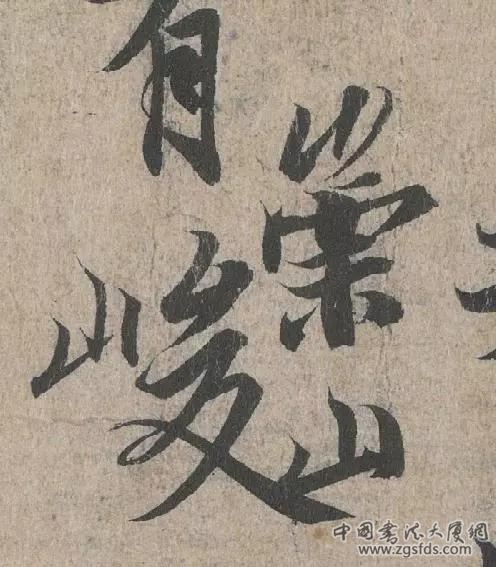 有崇山峻
中國書法大廈網
www.zgsfds.com